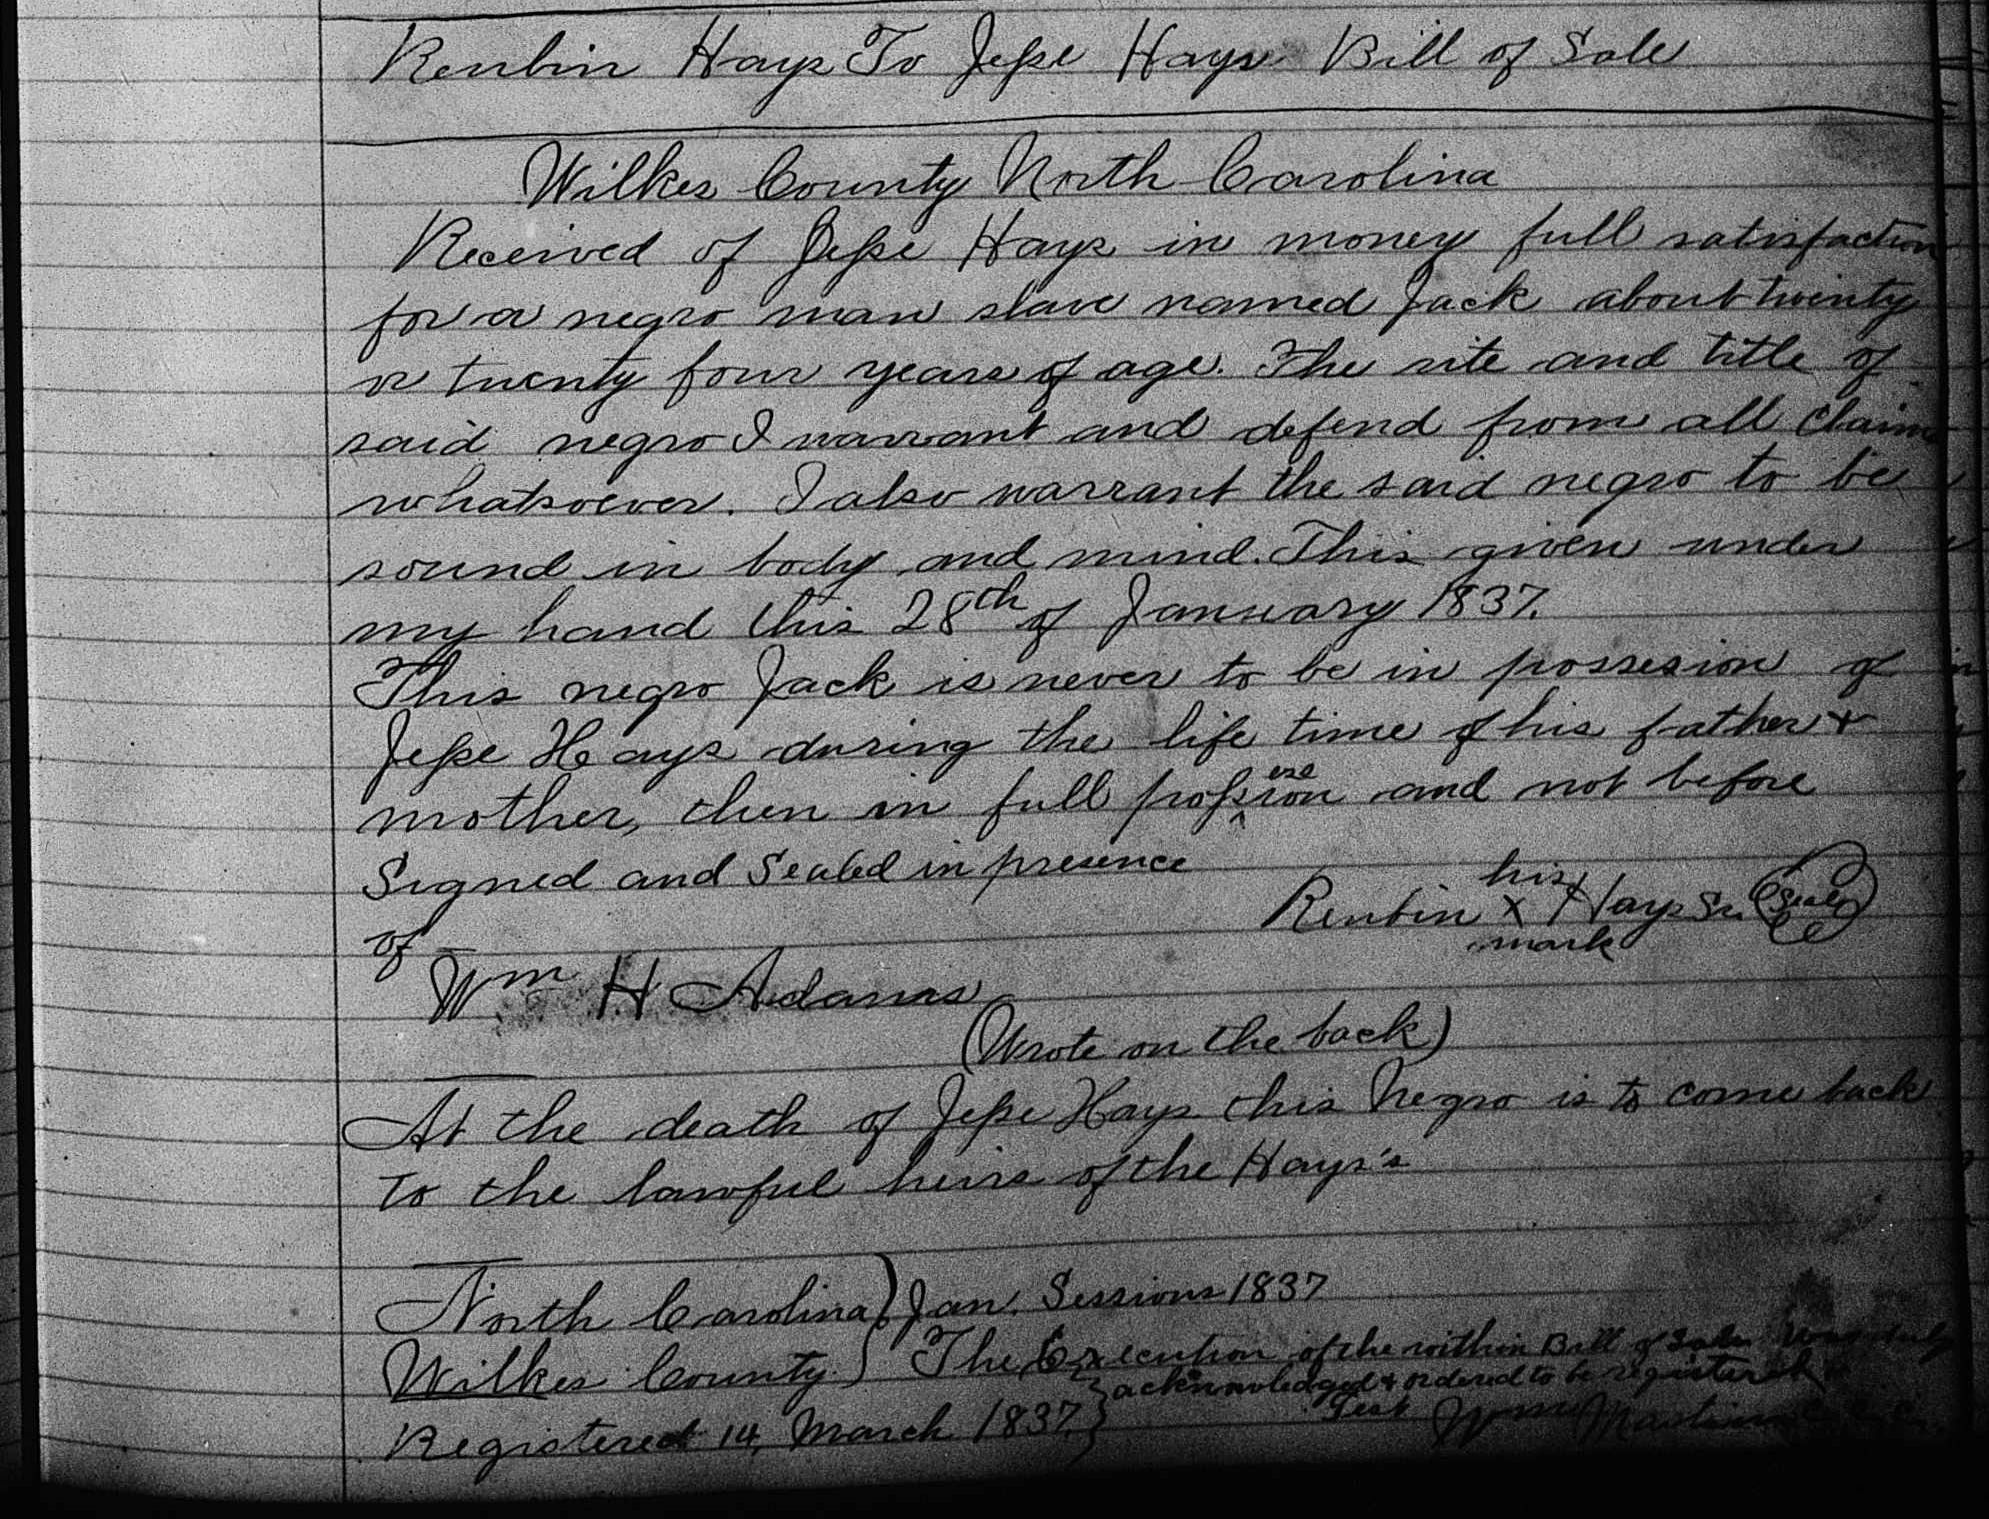 Reubin Hays To Jesse Hays Bill of Sale
Wilkes County North Carolina
Received of Jesse Hays in money full satisfaction
for a negro man slave named Jack about twenty
or twenty four years of age. The rite and title of
said negro I warrant and defend from all claims
whatsoever. I also warrant the said negro to be
sound in body and mind. This given under
my hand this 28th of January 1837.
This negro Jack is never to be in possesion of
Jesse Hays during the life time of his father &
mother, then in full possesion and not before
Signed and Sealed in presence
of
Reubin his X mark Hays Sr. (Seal)
Wm H Adams
(Wrote on the back)
At the death of Jesse Hays this Negro is to come back
to the lawful heirs of the Hays's
North Carolina } Jan. Sessions 1837
Wilkes County } The Execution of the within Bill of Sale was duly
acknowledged & ordered to be registered
Test Wm Mastin
Registered 14, March 1837.